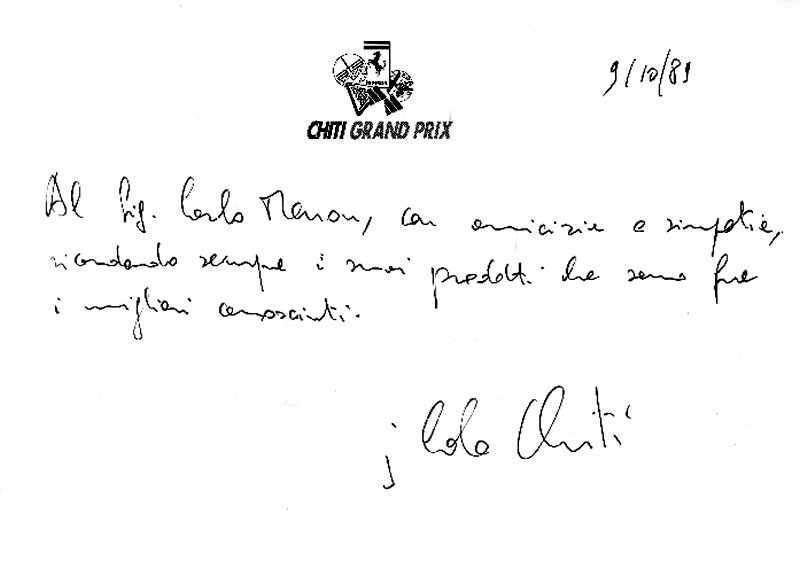 9/10/89
CHITI GRAND PRIX
Al Sig. Carlo Menon, con amicizia e simpatia,
ricordando sempre i suoi prodotti che sono fra
i migliori conosciuti.
Carlo Chiti